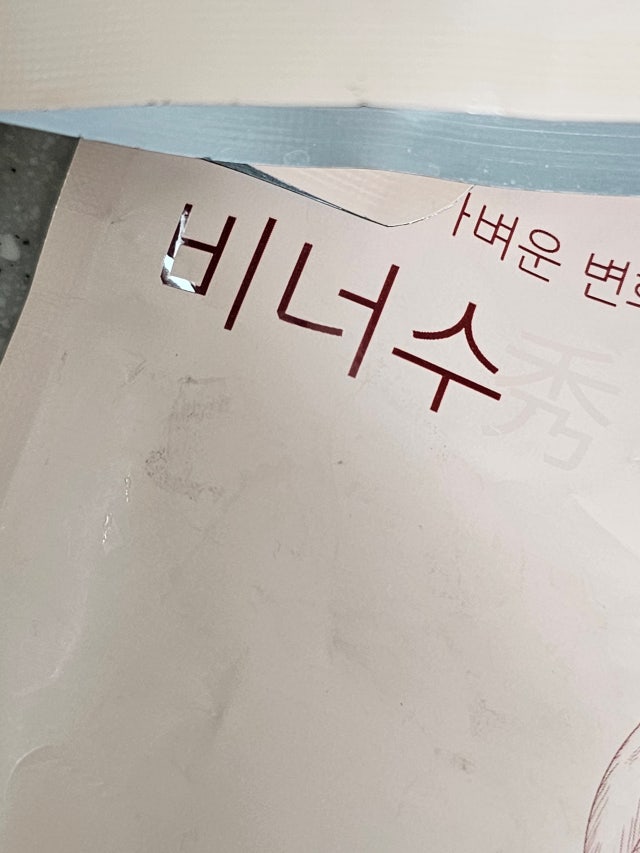 벼운 변화
비너수
秀